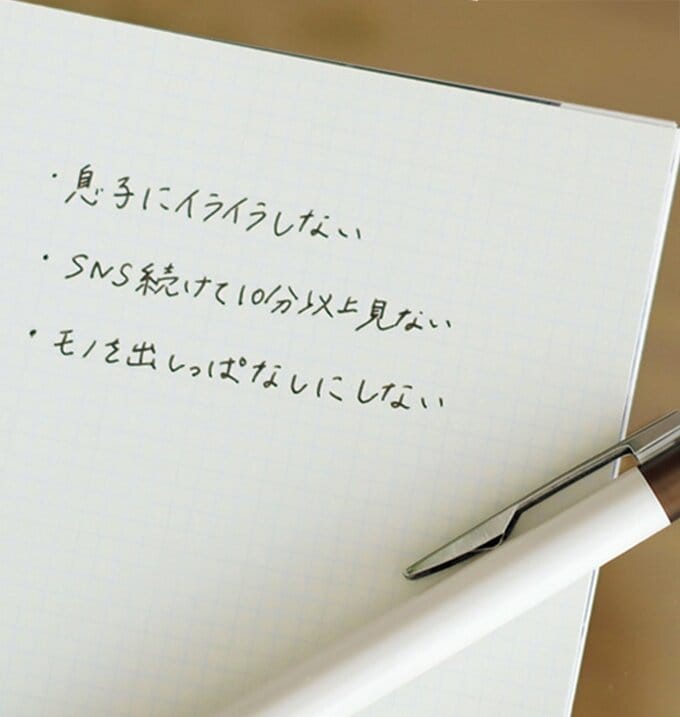 ・息子にイライラしない
・SNS続けて10分以上見ない
・モノを出しっぱなしにしない